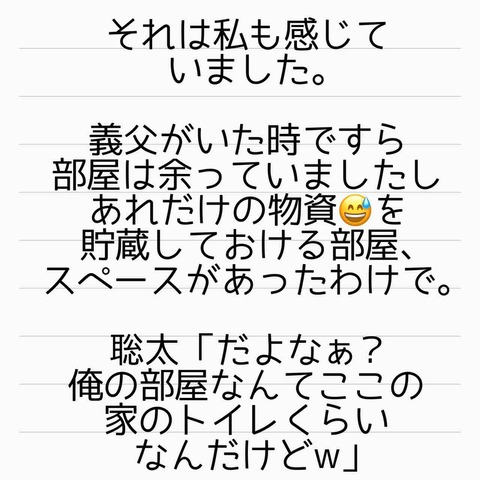 それは私も感じて
いました。
義父がいた時ですら
部屋は余っていましたし
あれだけの物資😅を
貯蔵しておける部屋、
スペースがあったわけで。
聡太「だよなぁ？
俺の部屋なんてここの
家のトイレくらい
なんだけどw」